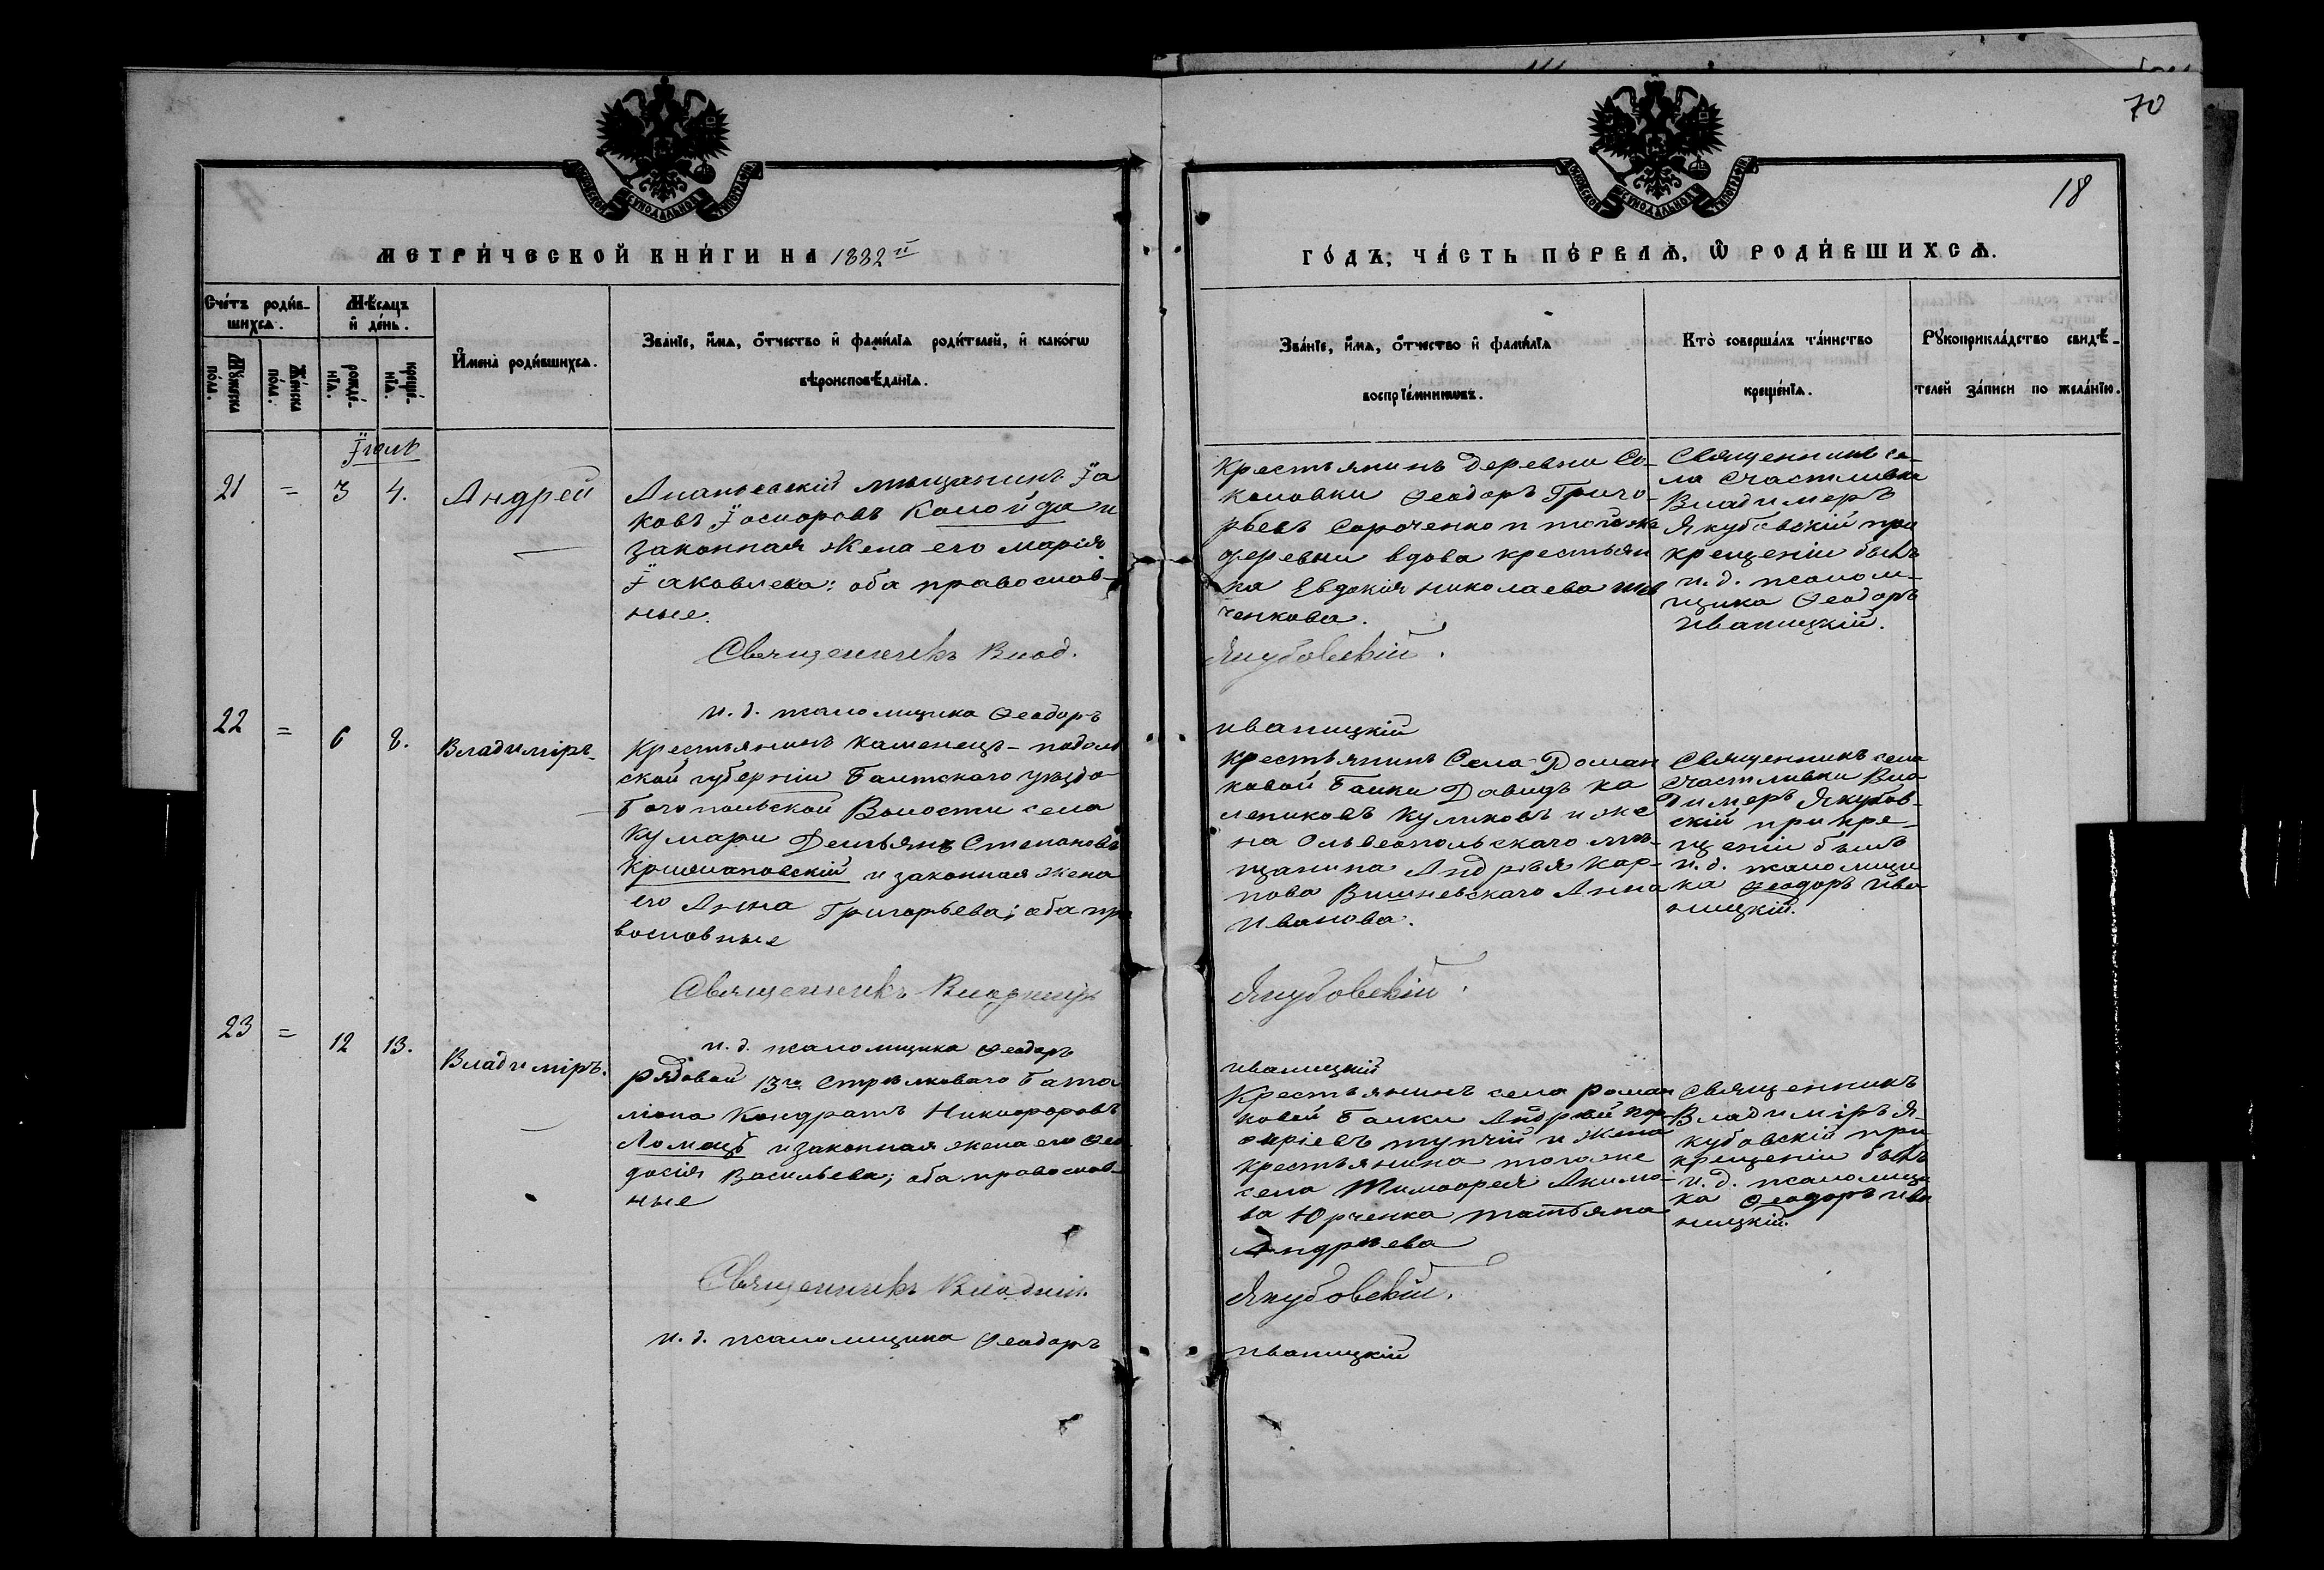 70
18
МОСКОВСКОЙ СѴНОДАЛЬНОЙ ТИПОГРАФІИ.
МОСКОВСКОЙ СѴНОДАЛЬНОЙ ТИПОГРАФІИ.
МЕТРИ́ЧЕСКОЙ КНИ́ГИ НА 1882 й
ГО́ДЪ, ЧА́СТЬ ПЕ́РВАѦ, Ѡ РОДИ́ВШИХСѦ.
Сче́тъ роди́в-
шихсѧ.
Мѣ́сѧцъ
и де́нь.
Мꙋ́жеска
по́ла.
Же́нска
по́ла.
рожде́-
нїѧ.
креще́-
нїѧ.
Имена̀ роди́вшихсѧ.
Зва́нїе, и́мѧ, о́тчество и фами́лїѧ роди́телей, и како́гѡ
вѣроисповѣ́данїѧ.
Зва́нїе, и́мѧ, о́тчество и фами́лїѧ
воспрїе́мникѡвъ.
Кто̀ соверша́лъ та́инство
креще́нїѧ.
Рꙋкоприкла́дство свидѣ́-
телей за́писи по жела́нїю.
Іюль
21 = 3 4. Андрей
Ананьевскій мѣщанинъ Іа
ковъ Іосифовъ Колойда и
законная жена его Марія
Іаковлева: оба православ-
ные.
Священникъ Влад.
и. д. псаломщика Ѳеодоръ
Крестьянинъ деревни Со-
коловки Ѳеодоръ Григо-
рьевъ Сороченко и той же
деревни вдова крестьян
ка Евдокія Николаева Шев
ченкова.
Якубовскій.
Иваницкій
Священникъ се-
ла Счастливки
Владимеръ
Якубовскій при
крещеніи былъ
и. д. псалом-
щика Ѳеодоръ
Иваницкій.
22 = 6 8. Владиміръ
Крестьянинъ Каменецъ-Подоль
ской губерніи Балтскаго уѣзда
Богопольской Волости села
Кумари Демьянъ Степановъ
и законная жена
его Анна Григорьева; оба пра
вославные
Священникъ Владимір
и. д. псаломщика Ѳеодоръ
Крестьянинъ Села Роман
ковой Балки Давидъ Ка
лениковъ Куликовъ и же
на Ольвіопольскаго мѣ-
щанина Андрея Кар-
пова Вишневскаго Анна
Иванова.
Якубовскій.
Иваницкій
Священникъ села
Счастливки Вла
димеръ Якубов-
скій при кре-
щеніи былъ
и. д. псаломщи
ка Ѳеодоръ Ива
ницкій.
23 = 12 13. Владиміръ.
рядовой 13го Стрѣлковаго Бата
ліона Кондратъ Никифоровъ
Ломацъ и законная жена его Ѳео
досія Васильева; оба православ-
ные
Священникъ Владимір.
и. д. псаломщика Ѳеодоръ
Крестьянинъ села Роман
ковой Балки Андрей Пор-
фиріевъ Тупчій и жена
крестьянина того же
села Тимоѳея Акимо-
ва Юрченка Татьяна
Андреева
Якубовскій.
Иваницкій
Священникъ
Владиміръ Я-
кубовскій при
крещеніи былъ
и. д. псаломщи
ка Ѳеодоръ Ива
ницкій.